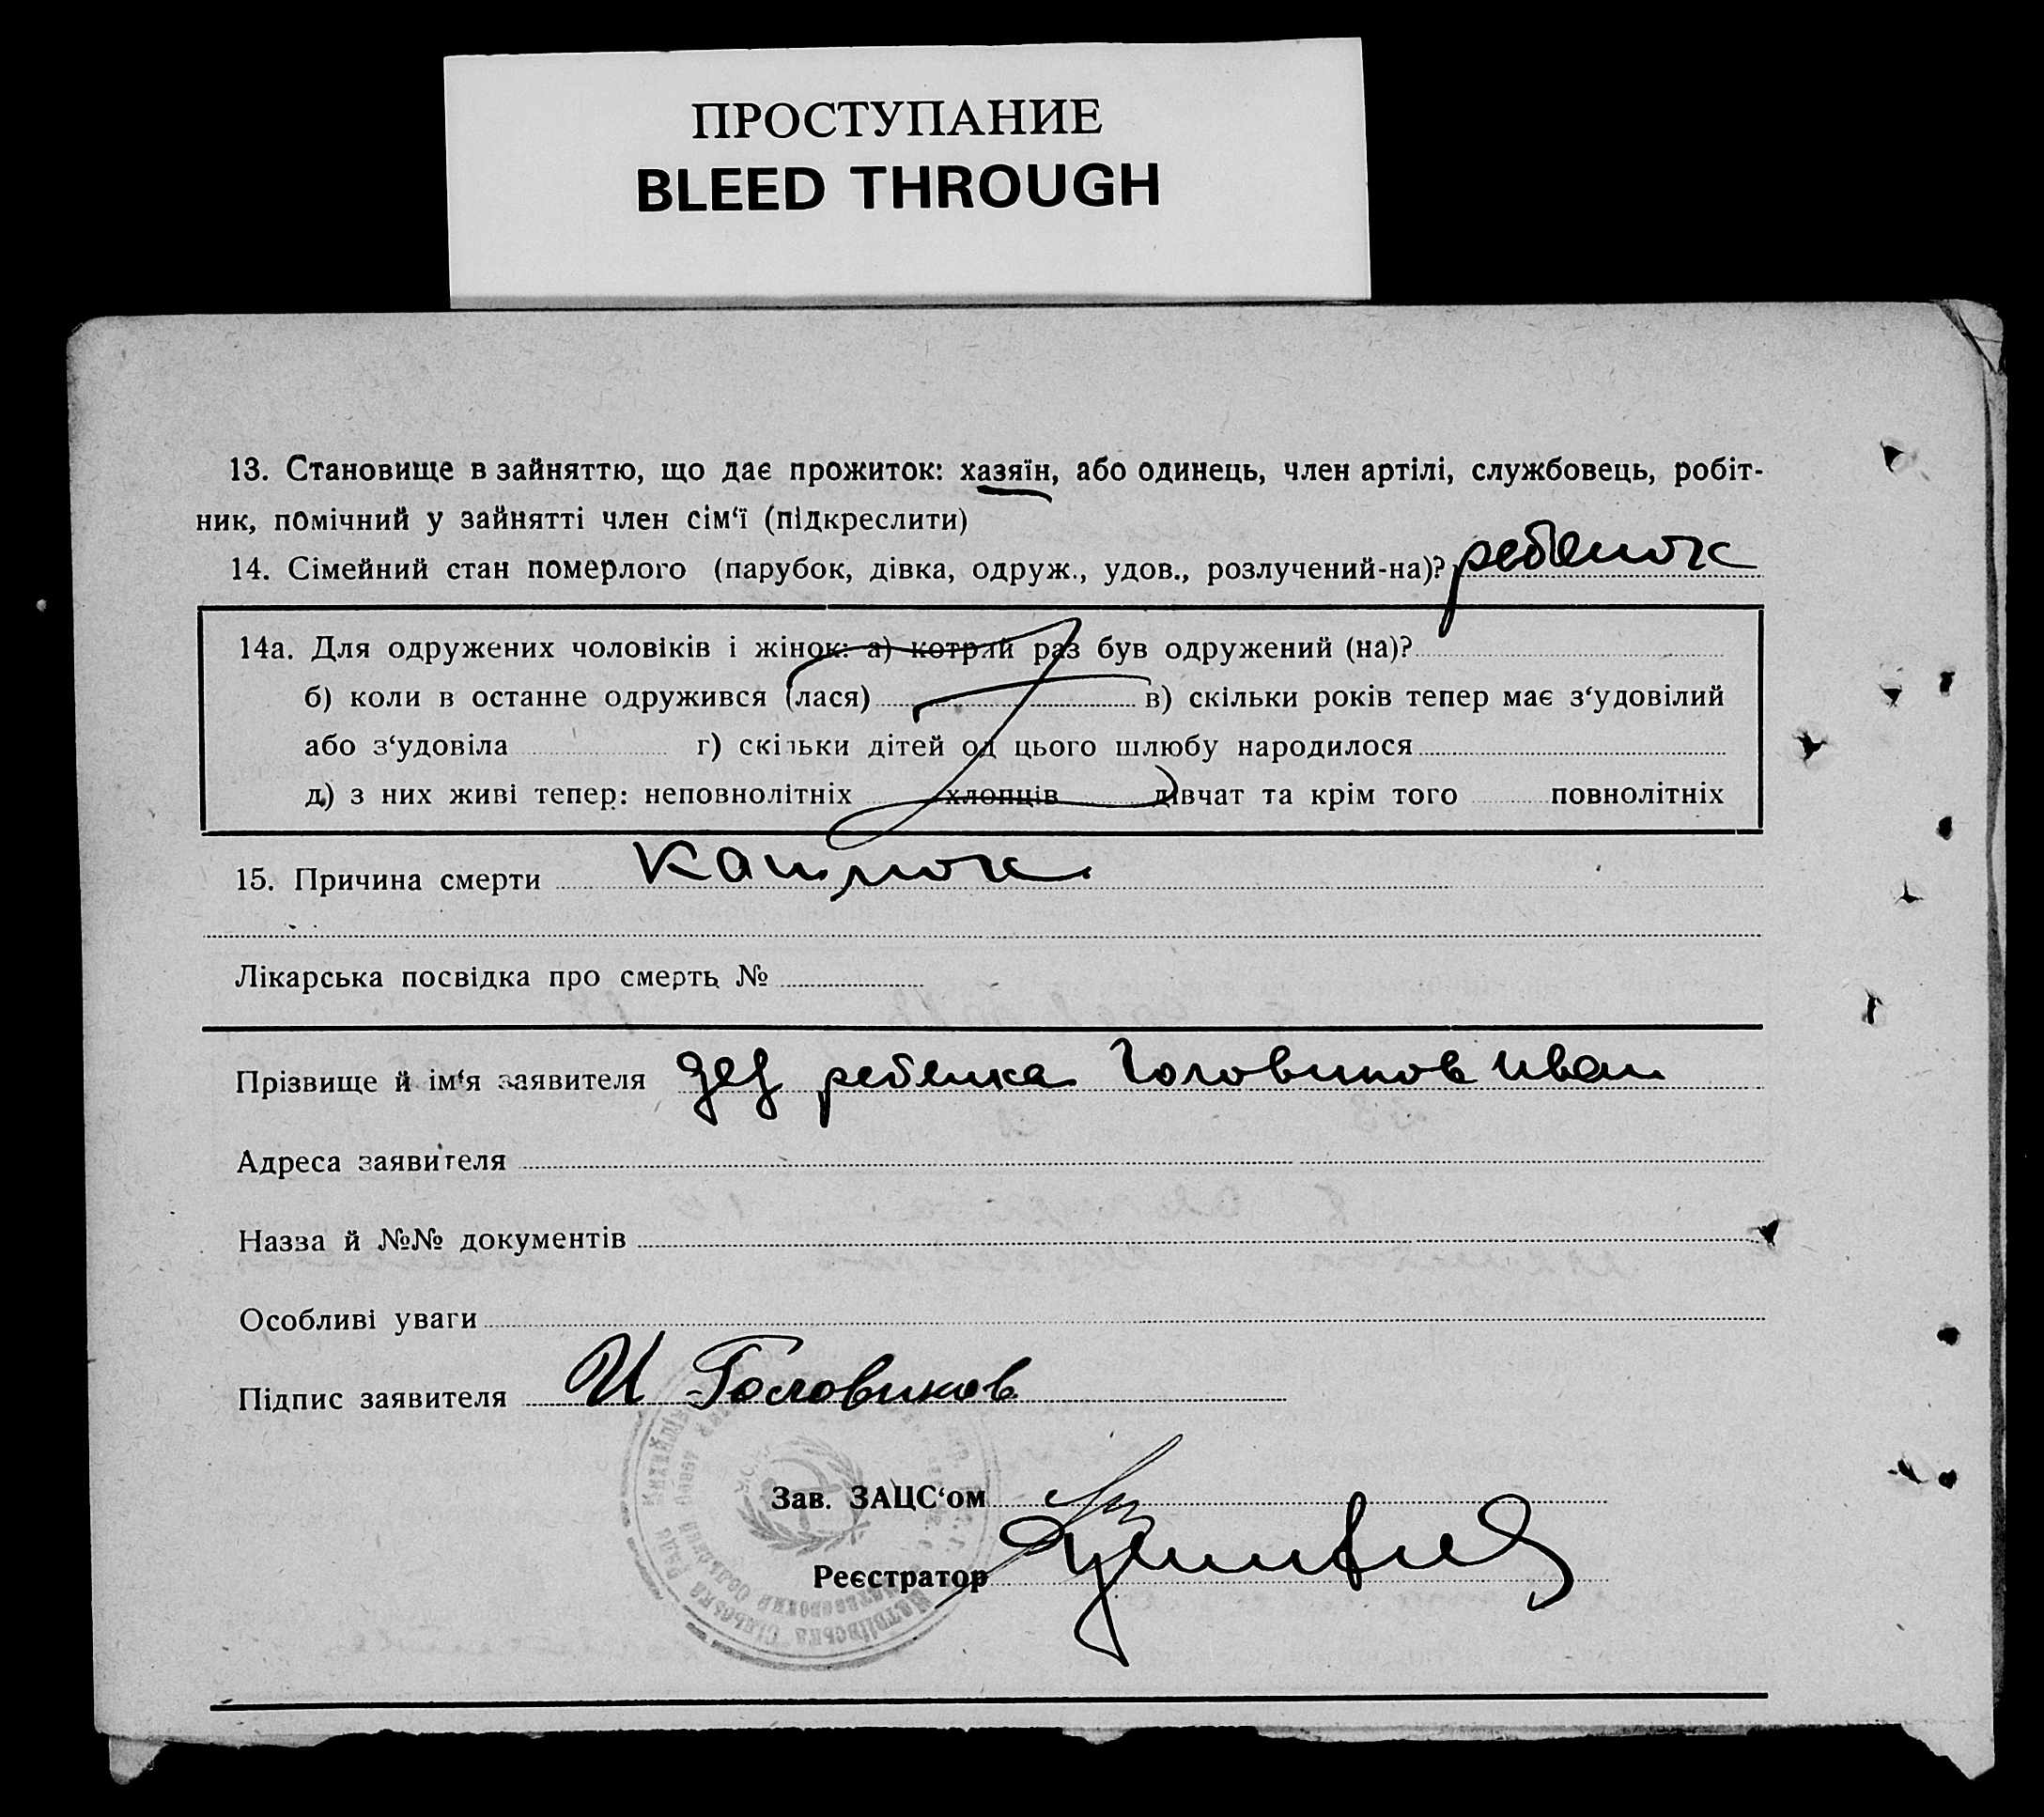 ПРОСТУПАНИЕ
BLEED THROUGH
13. Становище в зайняттю, що дає прожиток: хазяїн, або одинець, член артілі, службовець, робіт-
ник, помічний у зайнятті член сім‘ї (підкреслити)
14. Сімейний стан померлого (парубок, дівка, одруж., удов., розлучений-на)? ребенок
14а. Для одружених чоловіків і жінок: а) котрий раз був одружений (на)?
б) коли в останнє одружився (лася) в) скільки років тепер має з‘удовілий
або з‘удовіла г) скільки дітей од цього шлюбу народилося
д) з них живі тепер: неповнолітніх хлопців дівчат та крім того повнолітніх
15. Причина смерти
Лікарська посвідка про смерть №
Прізвище й ім‘я заявителя дед ребенка Головинов Иван
Адреса заявителя
Назва й №№ документів
Особливі уваги
Підпис заявителя И Головинов
Зав. ЗАЦС‘ом
Реєстратор